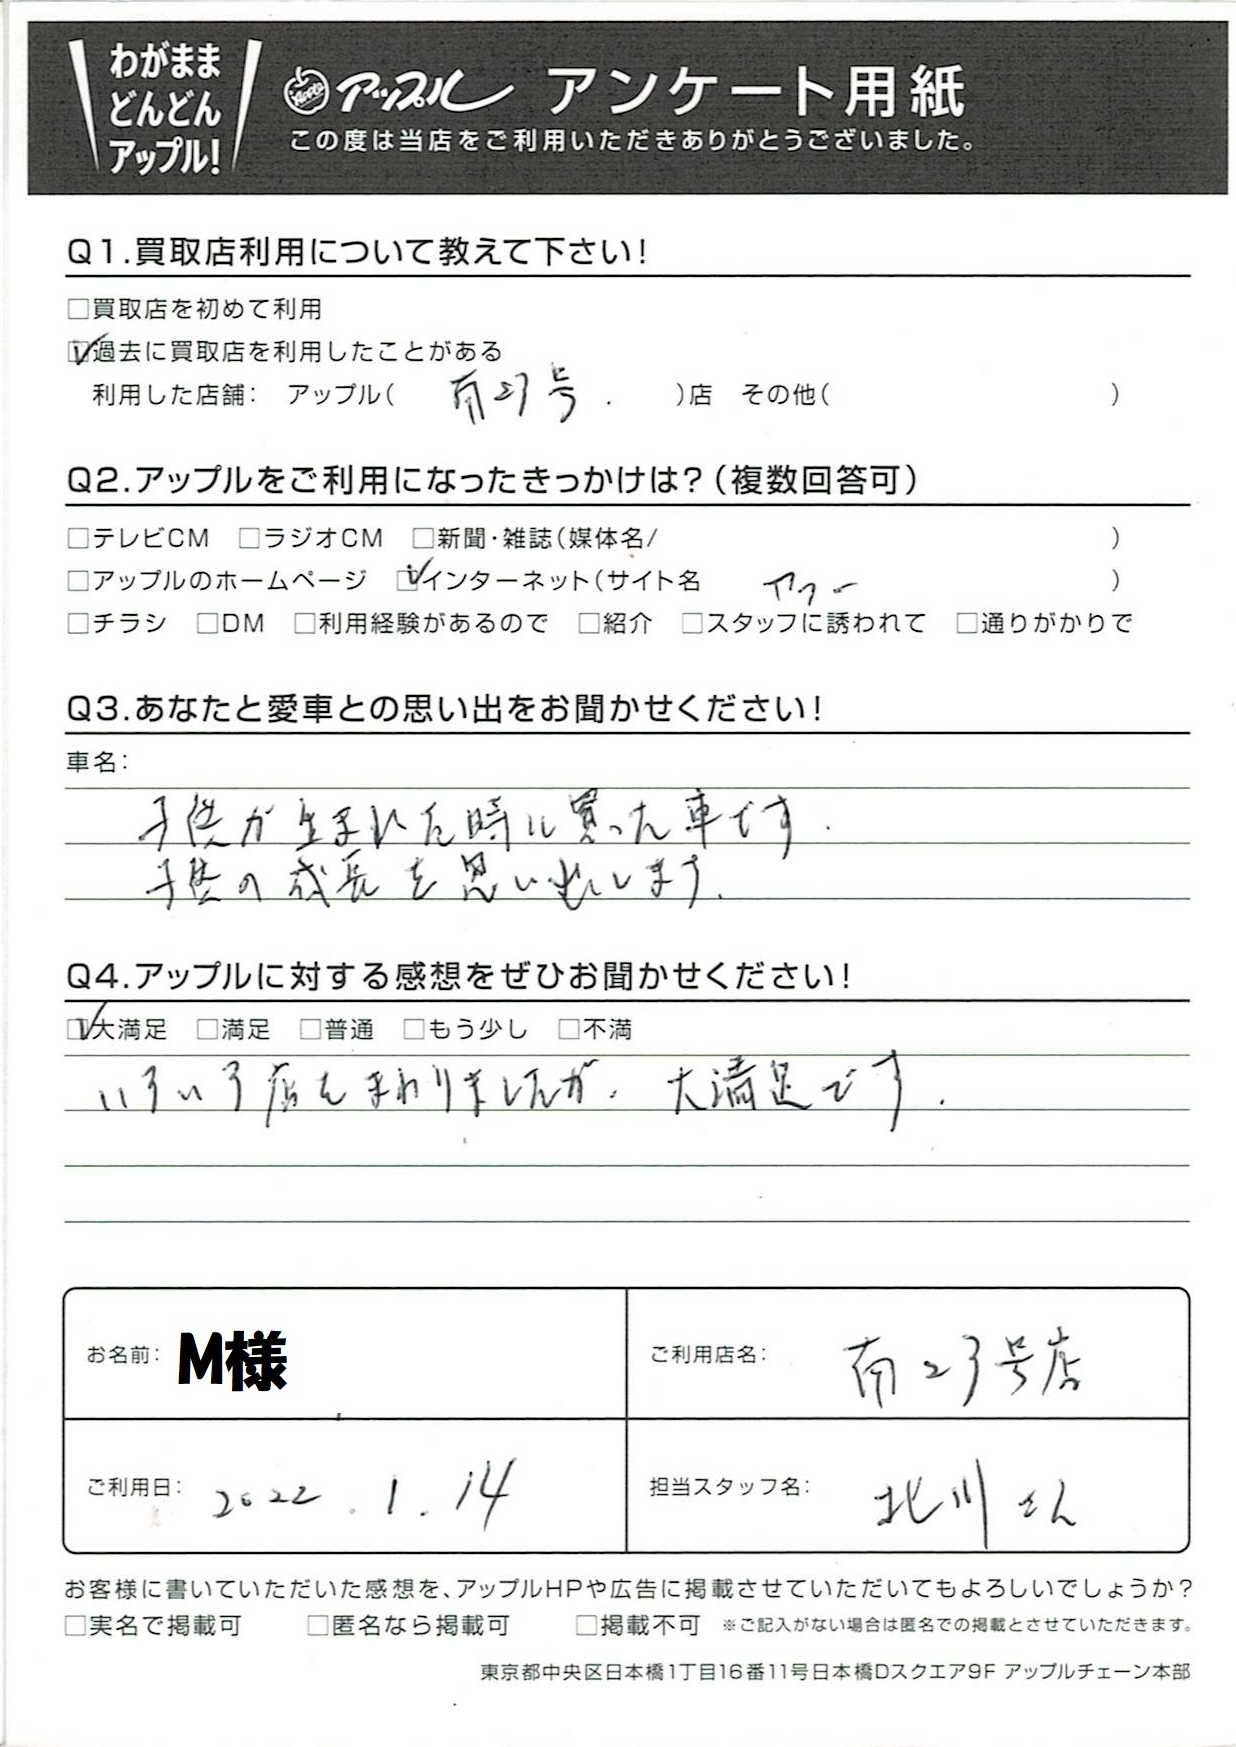 わがまま
どんどん
アップル!
Apple アップル アンケート用紙
この度は当店をご利用いただきありがとうございました。
Q1.買取店利用について教えて下さい!
□買取店を初めて利用
☑過去に買取店を利用したことがある
利用した店舗: アップル( 南23号. )店 その他( )
Q2.アップルをご利用になったきっかけは?(複数回答可)
□テレビCM □ラジオCM □新聞・雑誌(媒体名/ )
□アップルのホームページ ☑インターネット(サイト名 ヤフー )
□チラシ □DM □利用経験があるので □紹介 □スタッフに誘われて □通りがかりで
Q3.あなたと愛車との思い出をお聞かせください!
車名:
子供が生まれた時に買った車です.
子供の成長を思い出します.
Q4.アップルに対する感想をぜひお聞かせください!
☑大満足 □満足 □普通 □もう少し □不満
いろいろ店をまわりましたが、大満足です.
お名前: M様
ご利用店名: 南23号店
ご利用日: 2022.1.14
担当スタッフ名: 北川さん
お客様に書いていただいた感想を、アップルHPや広告に掲載させていただいてもよろしいでしょうか?
□実名で掲載可 □匿名なら掲載可 □掲載不可 ※ご記入がない場合は匿名での掲載とさせていただきます。
東京都中央区日本橋1丁目16番11号日本橋Dスクエア9F アップルチェーン本部